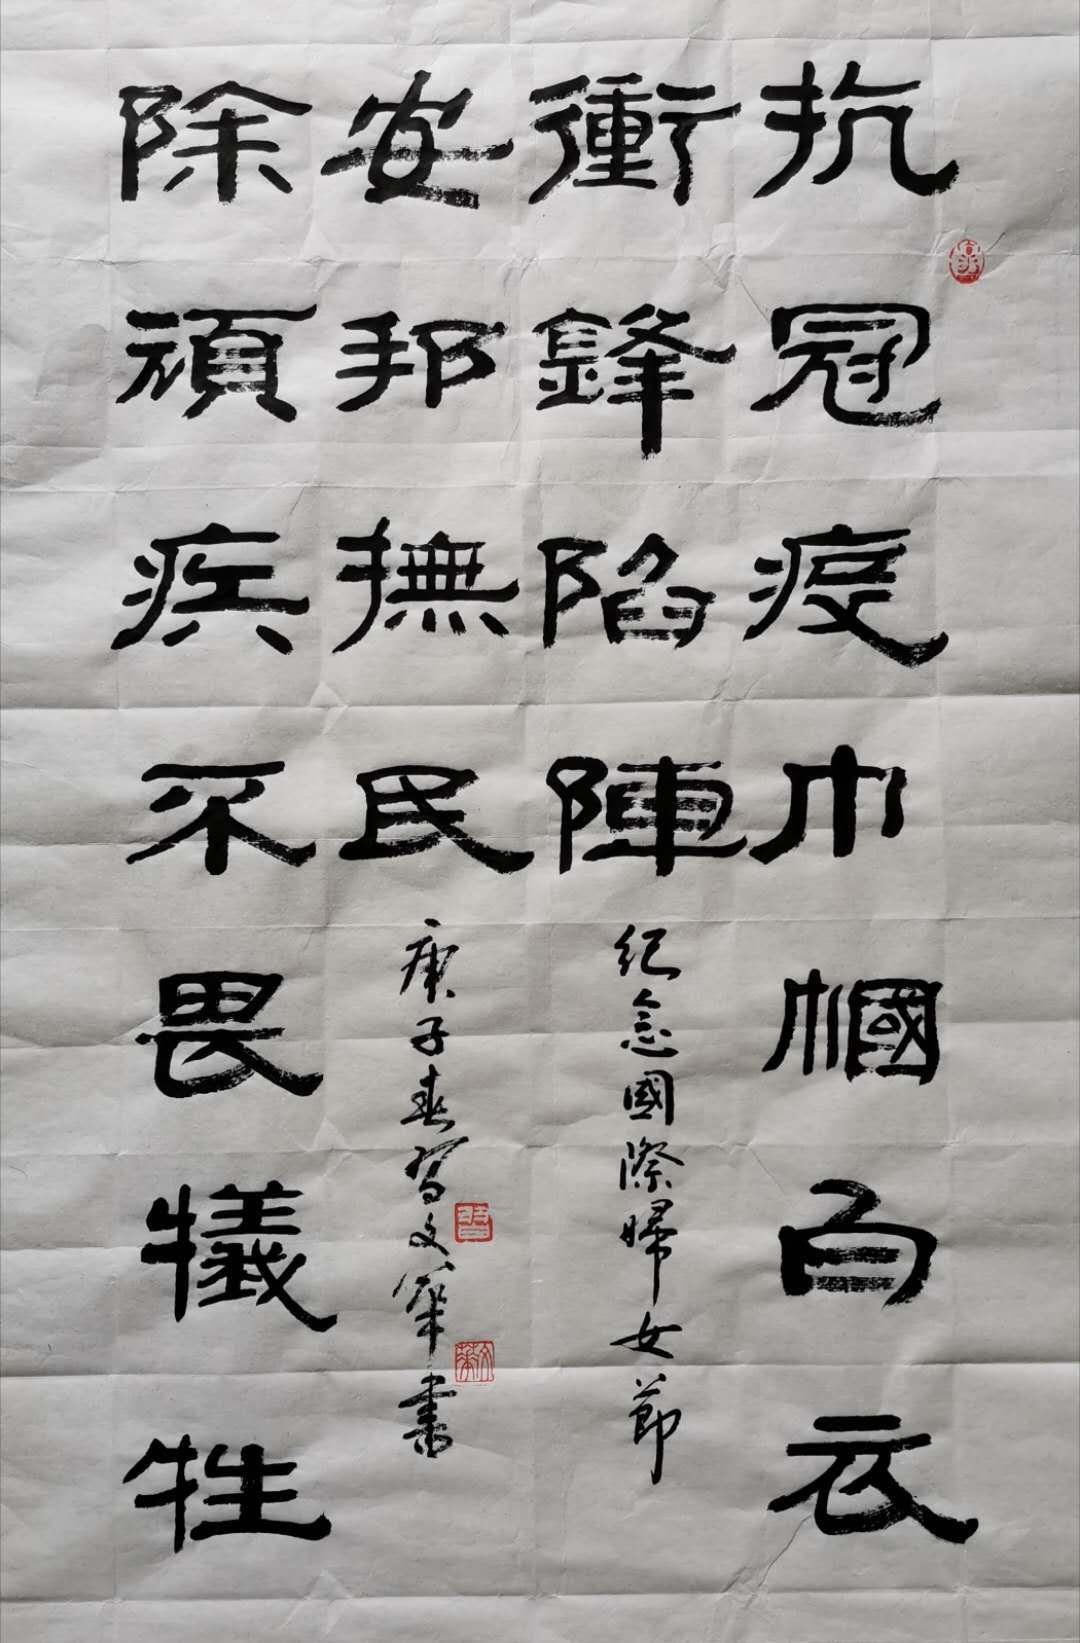 抗冠疫巾幗白衣
衝鋒陷陣
紀念國際婦女節
安邦撫民
庚子春習文華書
習
文華
除頑疾不畏犧牲